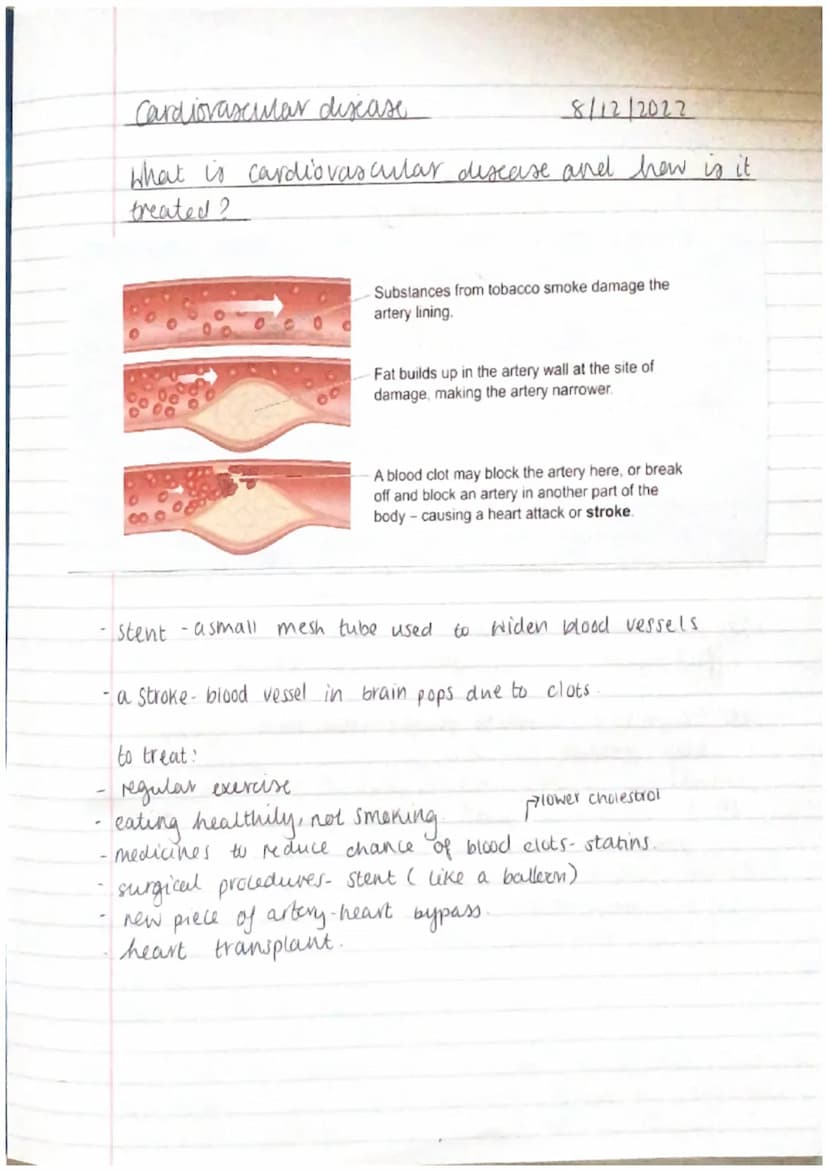 Cardiovascular disease 8/12/2022
What is cardiovascular disease and how is it
treated?
Substances from tobacco smoke damage the
artery lining.
Fat builds up in the artery wall at the site of
damage, making the artery narrower.
A blood clot may block the artery here, or break
off and block an artery in another part of the
body – causing a heart attack or stroke.
- stent - a small mesh tube used to widen blood vessels
- a stroke- blood vessel in brain pops due to clots.
to treat:
- regular exercise
- eating healthily, not smoking.
lower cholestrol
- medicines to reduce chance of blood clots- statins.
- surgical procedures- stent (like a balleon)
- new piece of artery-heart bypass.
- heart transplant.